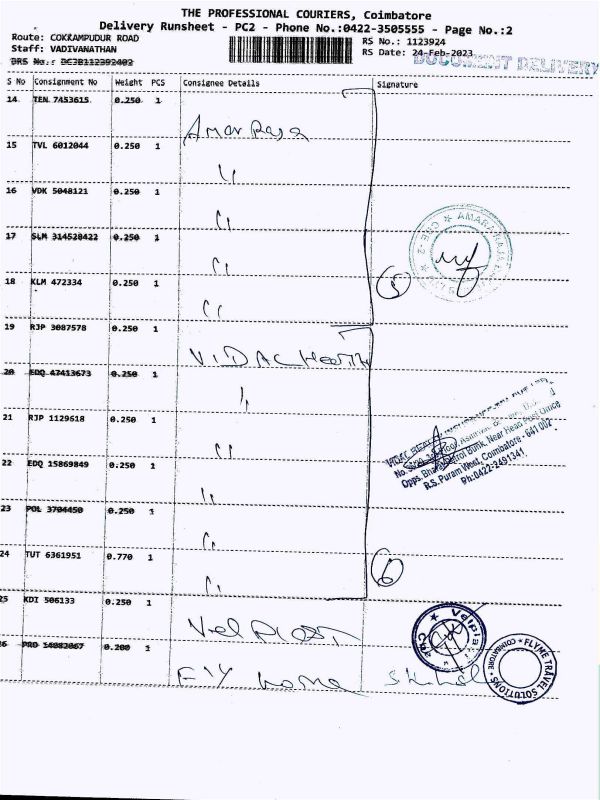 THE PROFESSIONAL COURIERS, Coimbatore
Delivery Runsheet - PC2 - Phone No.:0422-3505555 - Page No.:2
Route: COKRAMPUDUR ROAD
RS No.: 1123924
Staff: VADIVANATHAN
RS Date: 24-Feb-2023
DRS No.: DCJB112392402
DOCUMENT DELIVERY
S No Consignment No Weight PCS Consignee Details Signature
14 TEN 7453615 0.250 1
Amar Raja
15 TVL 6012044 0.250 1
〃
16 VDK 5048121 0.250 1
〃
17 SLM 314520422 0.250 1
〃
18 KLM 472334 0.250 1
〃
5
19 RJP 3087578 0.250 1
20 EDQ 47413673 0.250 1
〃
21 RJP 1129618 0.250 1
〃
22 EDQ 15869849 0.250 1
〃
23 POL 3704450 0.250 1
〃
24 TUT 6361951 0.770 1
〃
6
25 KDI 506133 0.250 1
26 PRO 14082067 0.200 1
AMARA RAJA
Near Head Post Office
R.S. Puram West, Coimbatore - 641 002
Ph:0422-2491341
FLYME TRAVEL SOLUTIONS
COIMBATORE